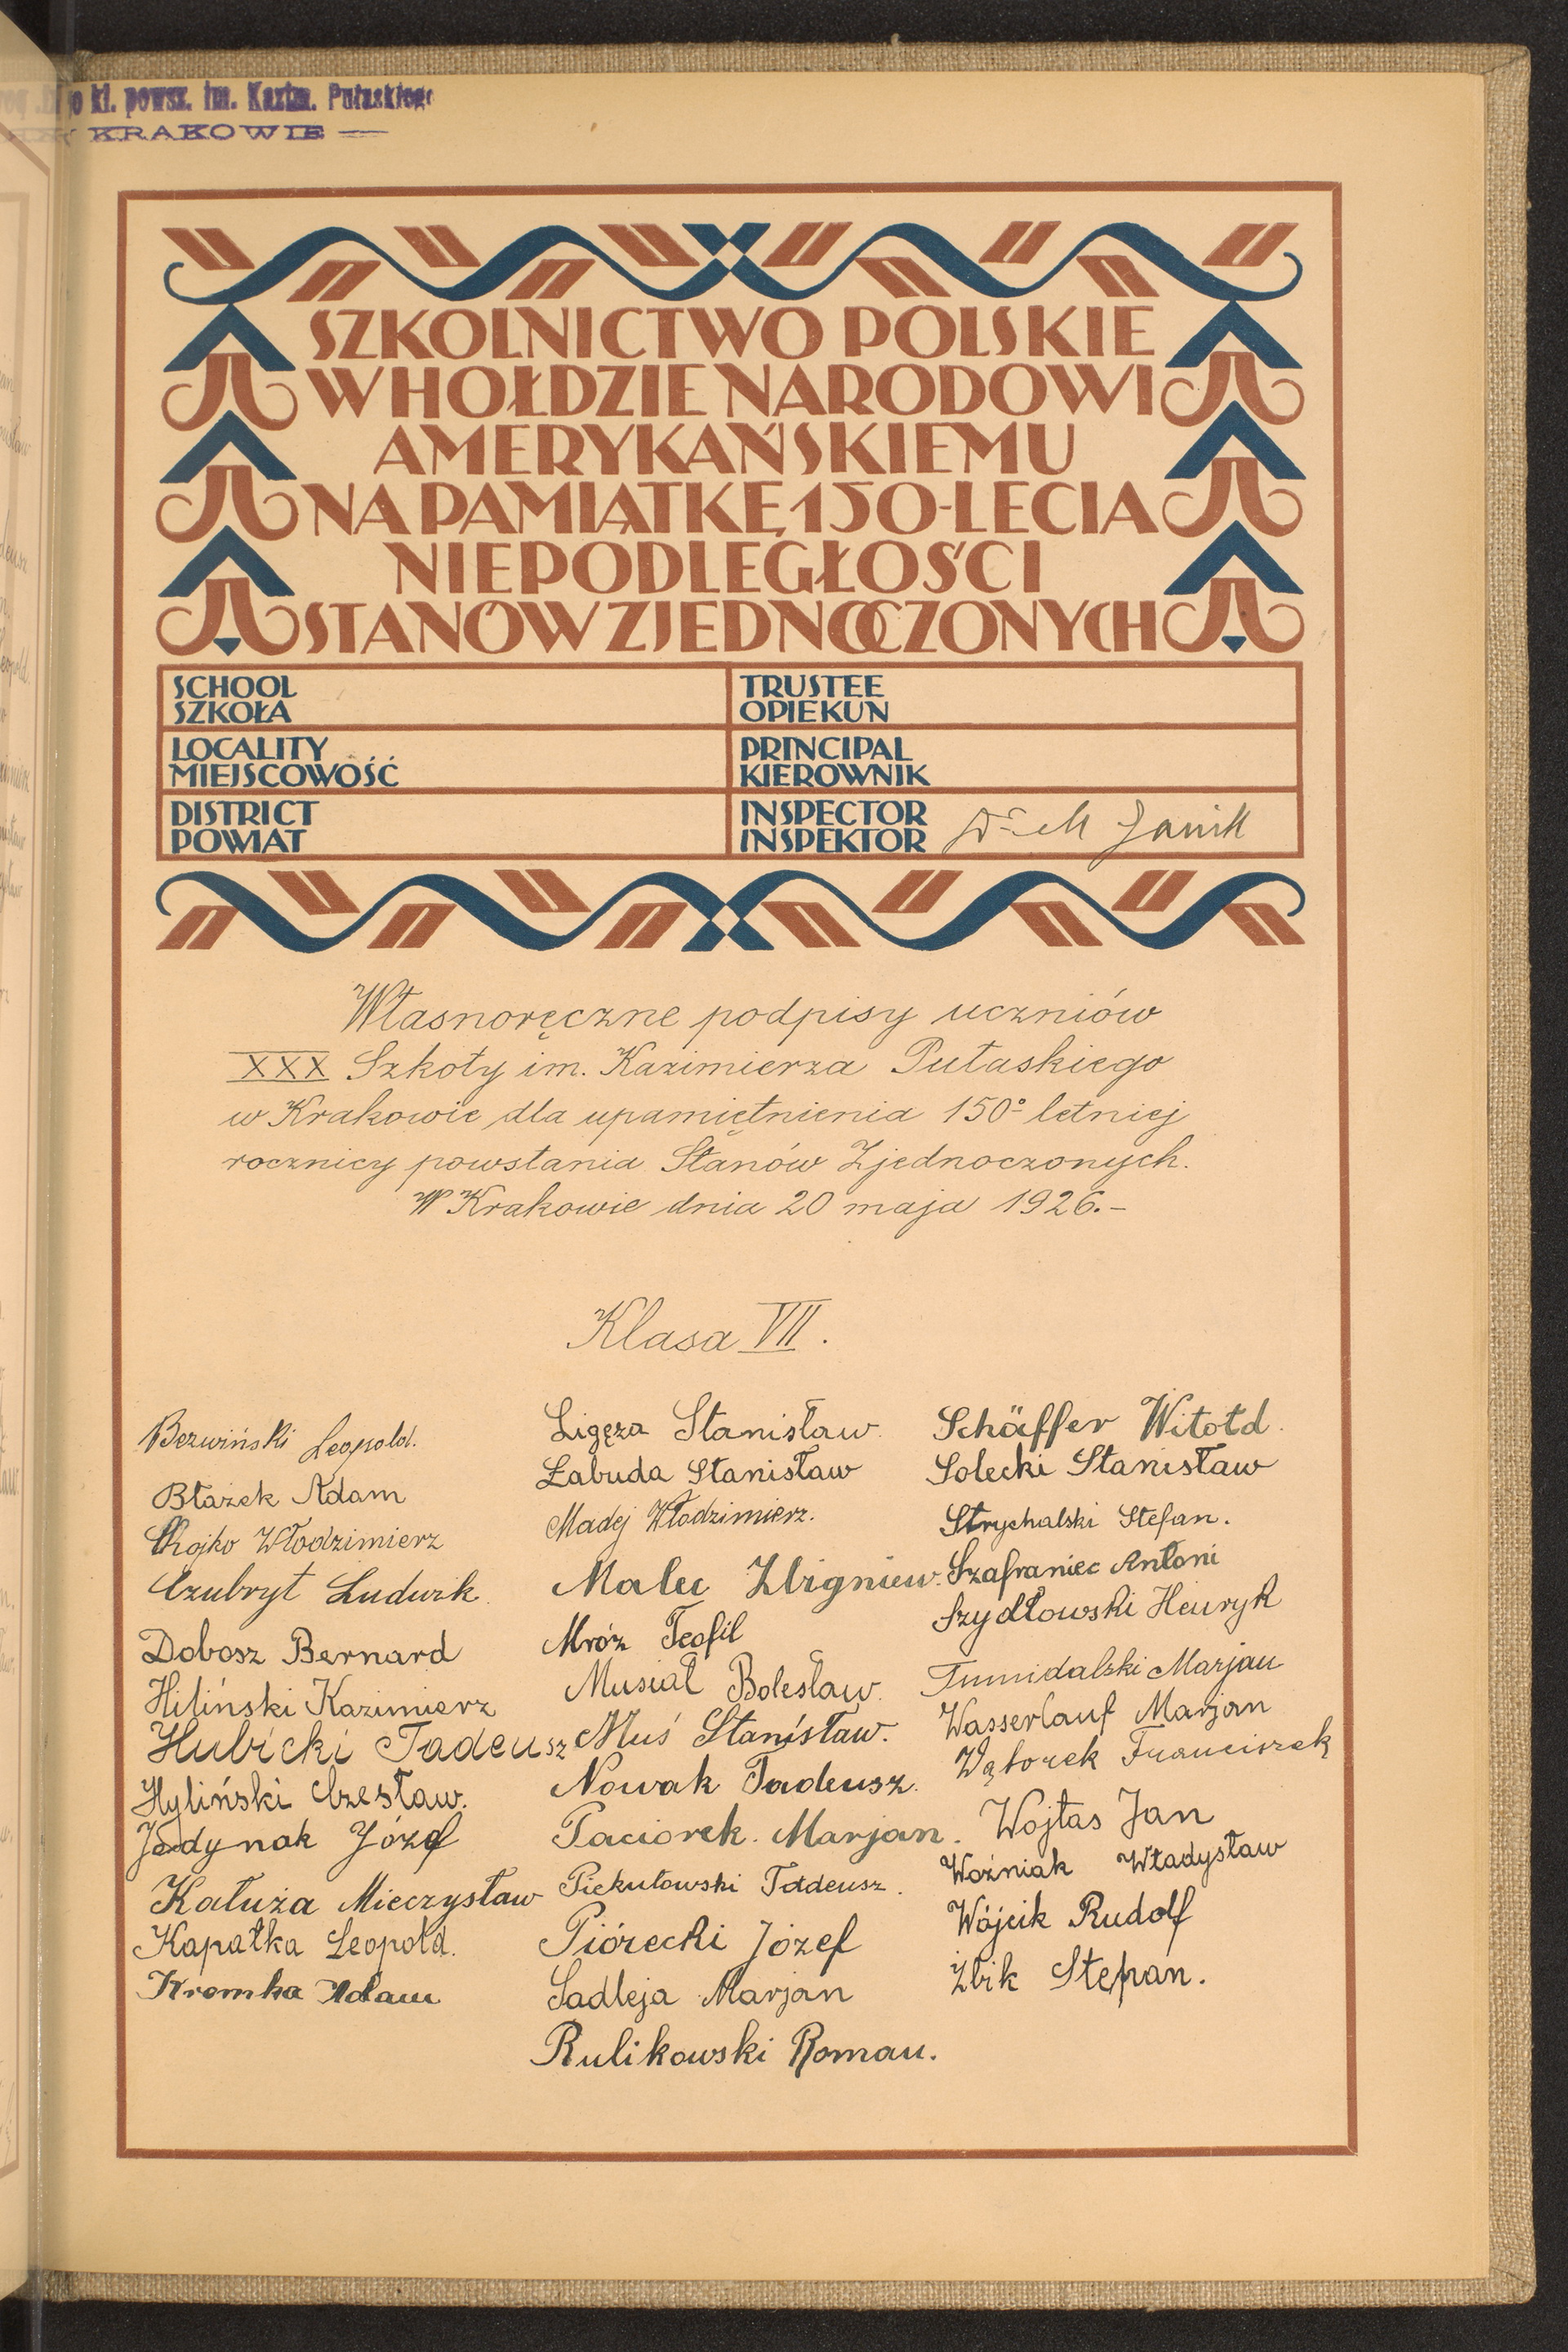 kl. powsz. im. Kazim. Pułaskiego
KRAKOWIE —
SZKOLNICTWO POLSKIE
W HOŁDZIE NARODOWI
AMERYKAŃSKIEMU
NA PAMIĄTKĘ 150-LECIA
NIEPODLEGŁOŚCI
STANÓW ZJEDNOCZONYCH
SCHOOL
SZKOŁA
TRUSTEE
OPIEKUN
LOCALITY
MIEJSCOWOŚĆ
PRINCIPAL
KIEROWNIK
DISTRICT
POWIAT
INSPECTOR
INSPEKTOR Dr M Janik
Własnoręczne podpisy uczniów
XXX Szkoły im. Kazimierza Pułaskiego
w Krakowie dla upamiętnienia 150º letniej
rocznicy powstania Stanów Zjednoczonych.
W Krakowie dnia 20 maja 1926.-
Klasa VII.
Bezwiński Leopold.
Błażek Adam
Chojko Włodzimierz
Czubryt Ludwik
Dobosz Bernard
Hiliński Kazimierz
Hubicki Tadeusz
Hyliński Czesław.
Jedynak Józef
Kałuża Mieczysław
Kapałka Leopold.
Kromka Adam
Ligęza Stanisław
Łabuda Stanisław
Madej Włodzimierz.
Malec Zbigniew.
Mróz Teofil
Musiał Bolesław.
Muś Stanisław.
Nowak Tadeusz.
Paciorek. Marjan.
Piekułowski Tadeusz.
Piórecki Józef
Sadleja Marjan
Rulikowski Roman.
Schäffer Witold.
Solecki Stanisław
Strychalski Stefan.
Szafraniec Antoni
Szydłowski Henryk
Tumidalski Marjan
Wasserlauf Marjan
Wątorek Franciszek
Wojtas Jan
Woźniak Władysław
Wójcik Rudolf
Żbik Stefan.